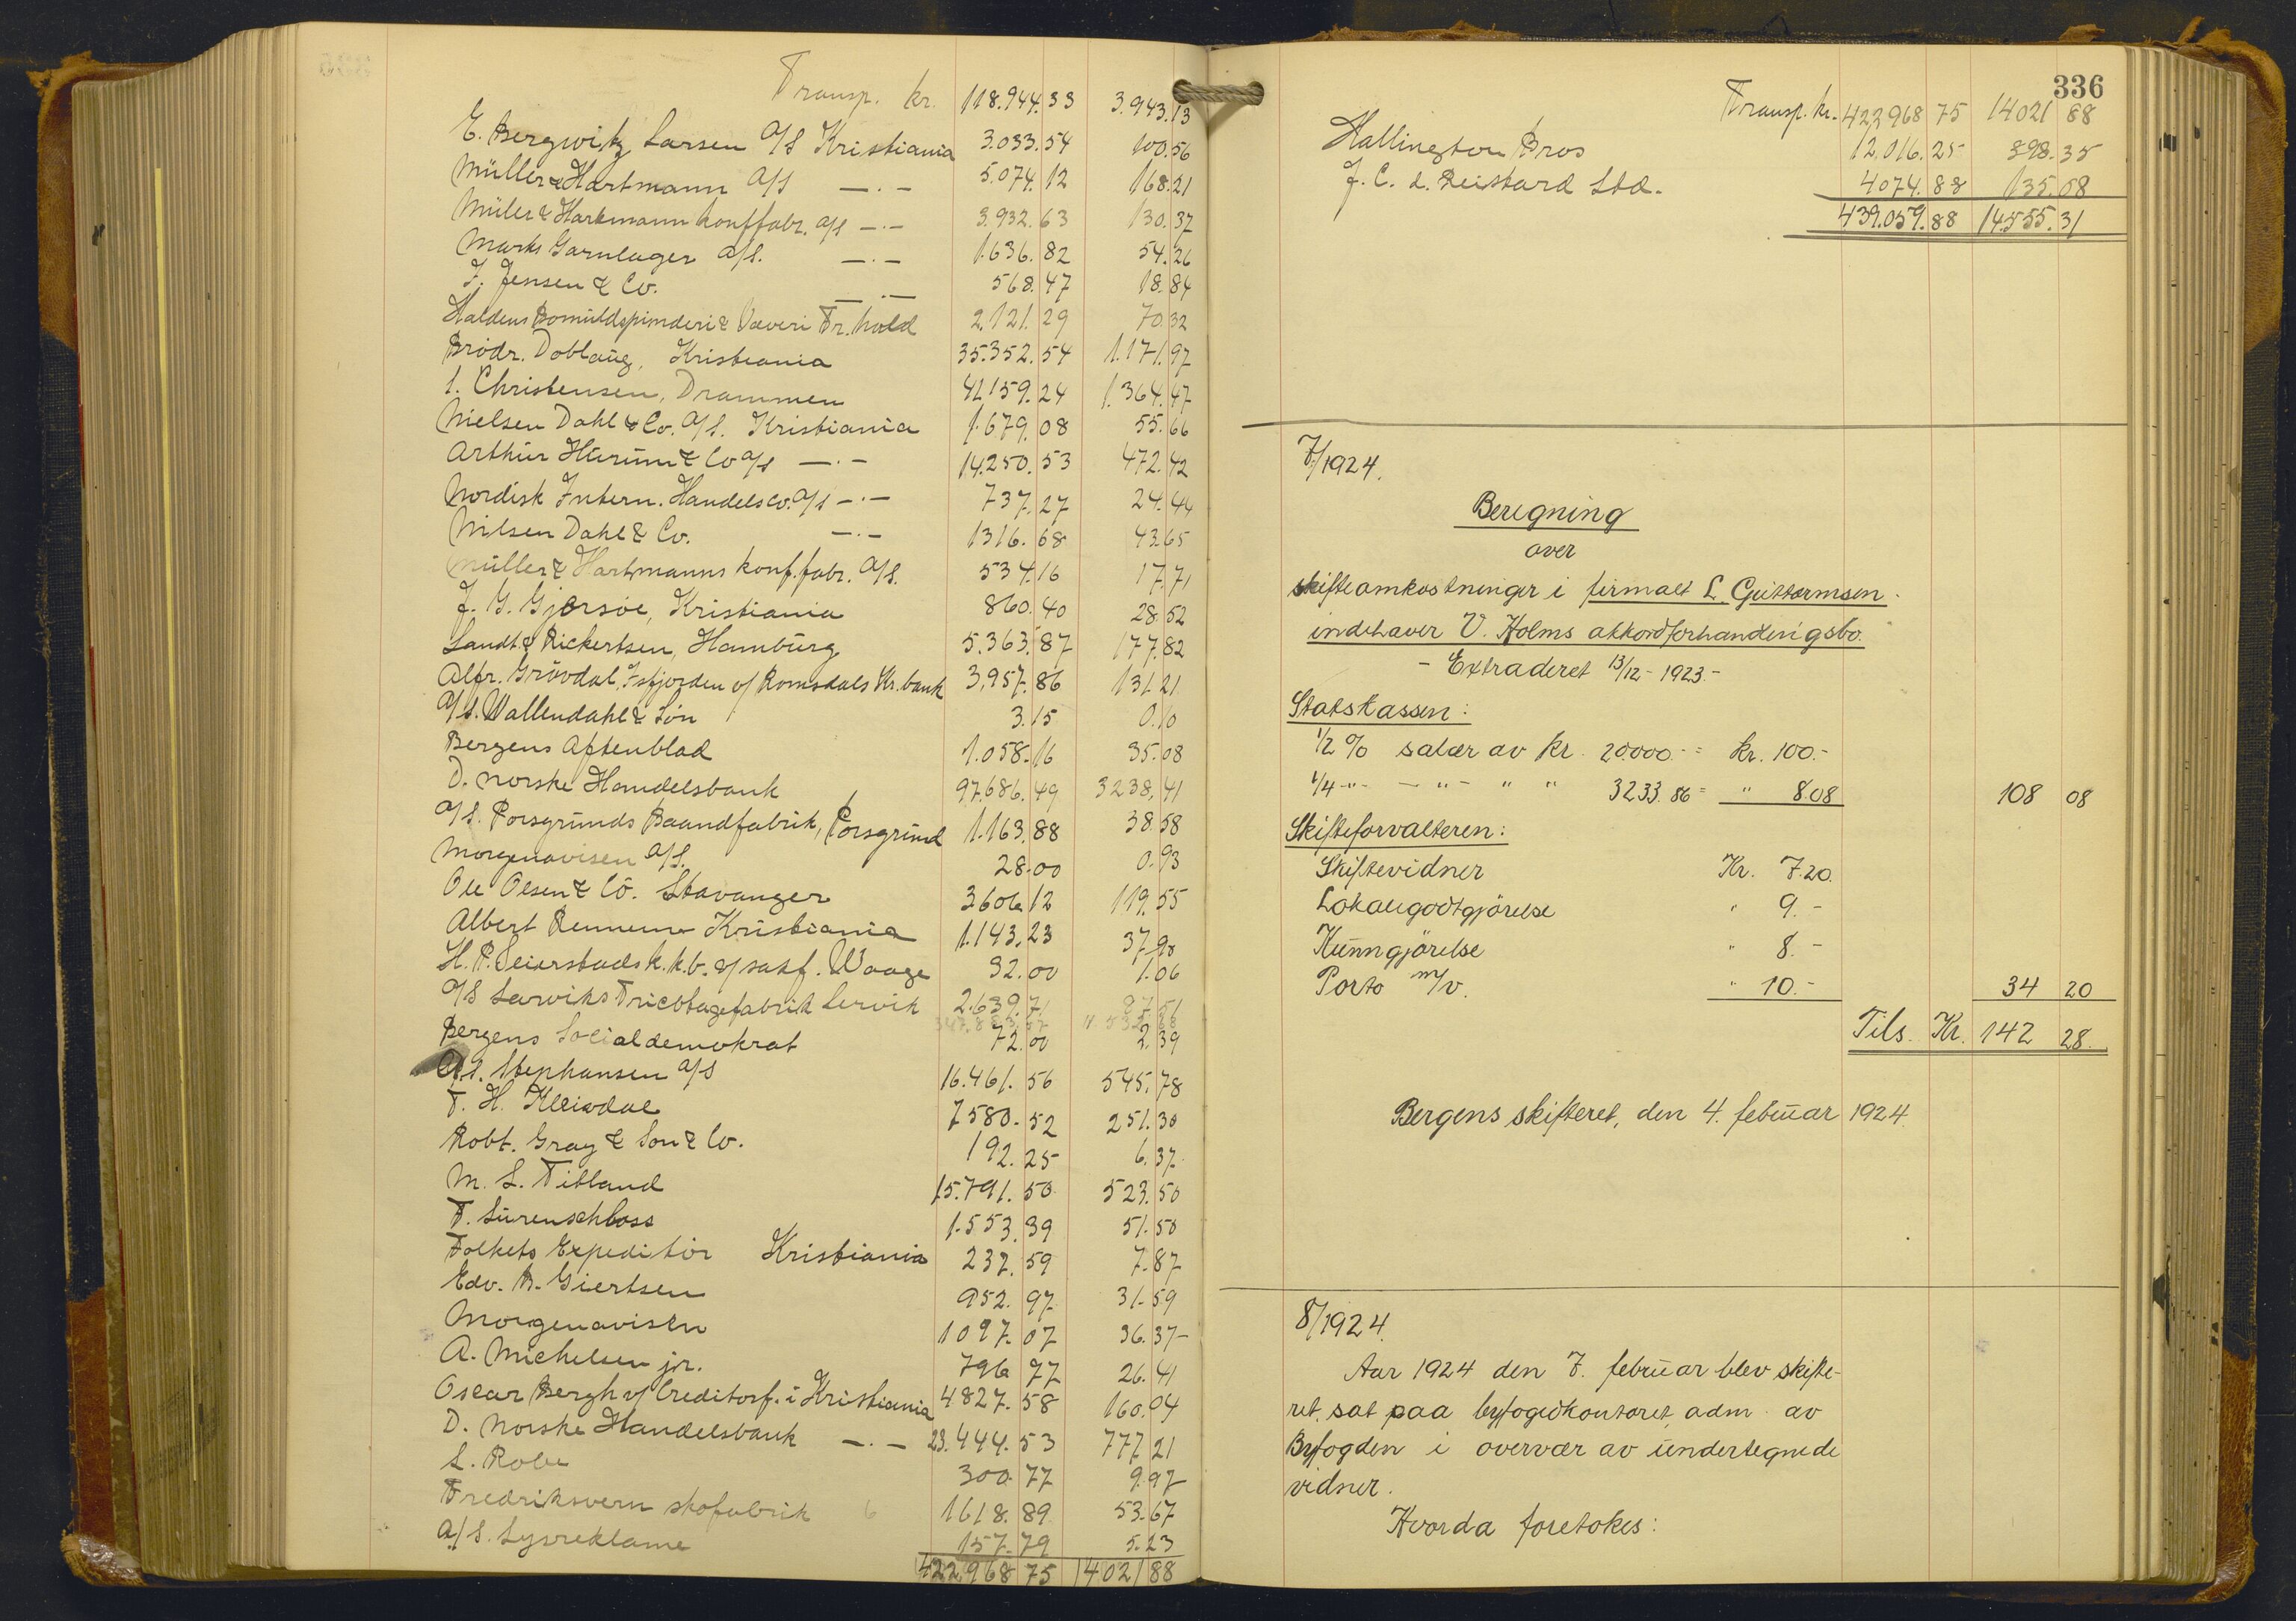 Transp. kr. 118.944.33 3.943.13
E. Bergwitz Larsen A/S Kristiania 3.033.54 100.56
Müller & Hartmann A/S —.— 5.074.12 168.21
Müller & Hartmann konffabr. A/S —.— 3.932.63 130.37
Marks Garnlager A/S. —.— 1.636.82 54.26
J. Jensen & Co. —.— 568.47 18.84
Haldens Bomuldspinderi & Væveri Fr.hald 2.121.29 70.32
Brödr. Dobloug, Kristiania 35.352.54 1.171.97
Christensen, Drammen 41159.24 1.364.47
Nielsen Dahl & Co. A/S. Kristiania 1.679.08 55.66
Arthur Hürum & Co A/S —.— 14.250.53 472.42
Nordisk Intern. Handelsco. A/S —.— 737.27 24.44
Nilsen Dahl & Co. —.— 1316.68 43.65
Müller & Hartmanns konf.fabr. A/S. 534.16 17.71
J. G. Gjørsöe, Kristiania 860.40 28.52
Landt & Rickertsen, Hamburg 5.363.87 177.82
Alfr. Grövdal, Isfjorden v/ Romsdals Kr.bank 3.957.86 131.21
A/S. Wallendahl & Sön 3.15 0.10
Bergens Aftenblad 1.058.16 35.08
D. norske Handelsbank 97.686.49 3238.41
A/S. Porsgrunds Baandfabrik, Porsgrund 1.163.88 38.58
Morgenavisen A/S. 28.00 0.93
Ole Olsen & Co. Stavanger 3606.12 119.55
Albert Kristiania 1.143.23 37.90
H. P. Seierstads k.k.b. v/ sakf. Waage 32.00 1.06
A/S Larviks Tricotagefabrik Larvik 2.639.71 87.51
Bergens Socialdemokrat 72.00 2.39
Stephansen A/S 16.461.56 545.78
T. H. Kleivdal 7580.52 251.30
Robt. Gray & Son & Co. 192.25 6.37
M. S. Titland 15.791.50 523.50
F. Sürenschloss 1.553.39 51.50
Folkets Expeditör Kristiania 237.59 7.87
Edv. B. Giertsen 952.97 31.59
Morgenavisen 1097.07 36.37
A. Michelsen jr. 796 77 26.41
Oscar Bergh v/ Creditorf. i Kristiania 4827.58 160.04
D. norske Handelsbank —.— 23.444.53 777 21
S. Robe 300.77 9.97
Fredriksvern skofabrik 1618.89 53.67
A/S. Lysreklame 157.79 5.23
422968 75 14021 88
336
Transp. kr. 422968 75 14021 88
Hallington Bros 12.016.25 398.35
J. C. Ltd. 4074.88 135.08
439.059.88 14.555.31
7/1924.
Beregning
over
skifteomkostninger i firmaet L. Guttormsen
indehaver V. Holms akkordforhandlingsbo.
- Extraderet 13/12 - 1923.-
Statskassen:
1/2 % salær av kr. 20000.- = kr. 100.-
1/4 -"- - " - " " 3233.86 = " 8.08 108 08
Skifteforvalteren:
Skiftevidner Kr. 7.20.
Lokalegodtgjörelse " 9.-
Kunngjörelse " 8.-
Porto m/v. " 10.- 34 20
Tils. Kr. 142 28.
Bergens skifteret, den 4. februar 1924.
8/1924.
Aar 1924 den 7. februar blev skifte-
ret sat paa byfogedkontoret adm av
Byfogden i overvær av undertegnede
vidner.
Hvorda foretokes: